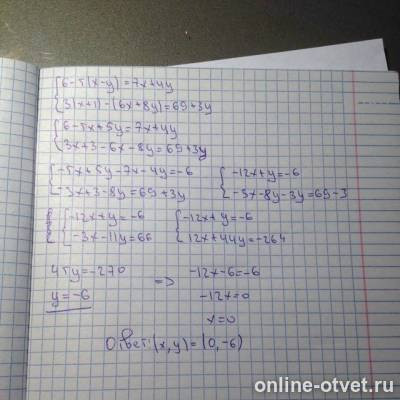 {6-5(x-y)=7x+4y
{3(x+1)-(6x+8y)=69+3y
{6-5x+5y=7x+4y
{3x+3-6x-8y=69+3y
{-5x+5y-7x-4y=-6 {-12x+y=-6
{-3x+3-8y=69+3y {-3x-8y-3y=69-3
{-12x+y=-6 {-12x+y=-6
{-3x-11y=66 {12x+44y=-264
45y=-270 => -12x-6=-6
y=-6 -12x=0
x=0
Ответ:(x,y)=(0,-6)
online-otvet.ru